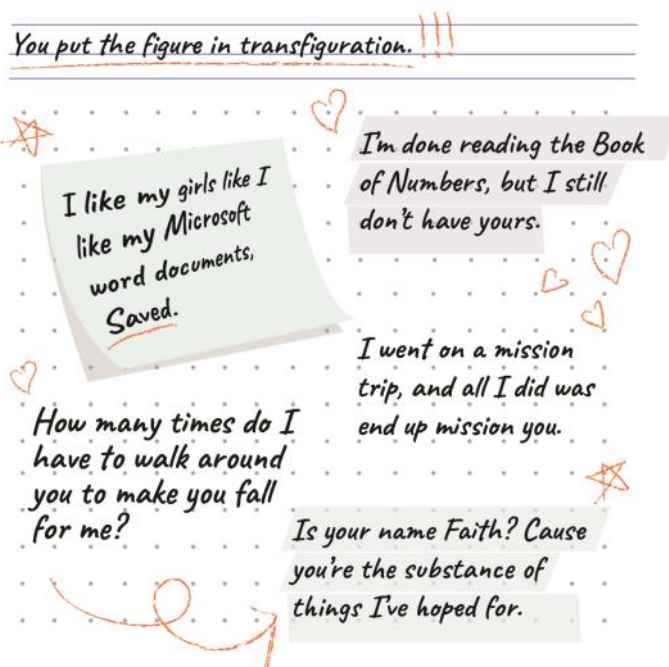 You put the figure in transfiguration. !!!
I like my girls like I
like my Microsoft
word documents,
Saved.
I'm done reading the Book
of Numbers, but I still
don't have yours.
I went on a mission
trip, and all I did was
end up mission you.
How many times do I
have to walk around
you to make you fall
for me?
Is your name Faith? Cause
you're the substance of
things I've hoped for.